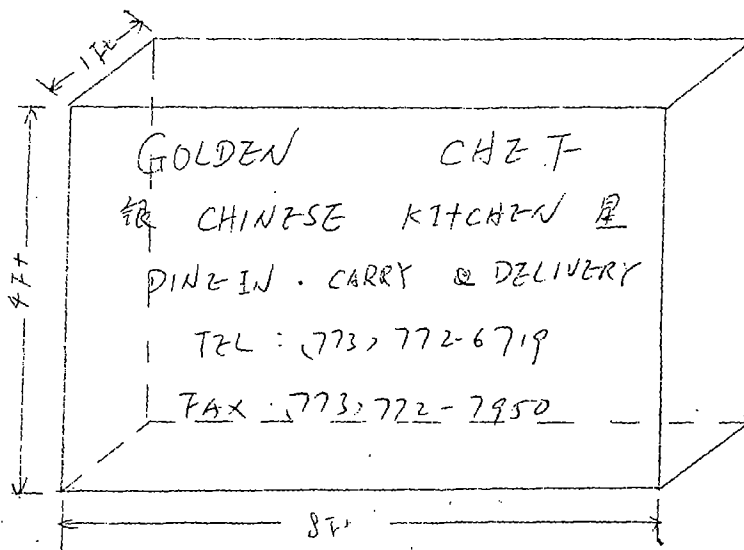 1 Ft
GOLDEN CHEF
银 CHINESE KITCHEN 星
DINE IN . CARRY & DELIVERY
4 Ft
TEL : (773) 772-6719
FAX : (773) 772-7950
8 Ft